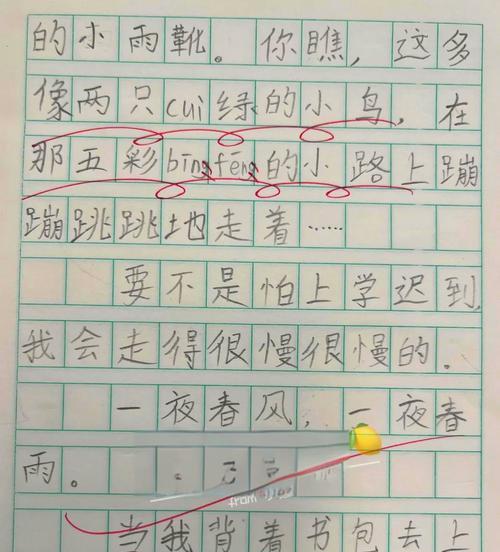 的小雨靴。你瞧,这多
像两只cuì绿的小鸟,在
那五彩bīngfēng的小路上蹦
蹦跳跳地走着……
要不是怕上学迟到,
我会走得很慢很慢的.
一夜春风,一夜春
雨。
当我背着书包去上